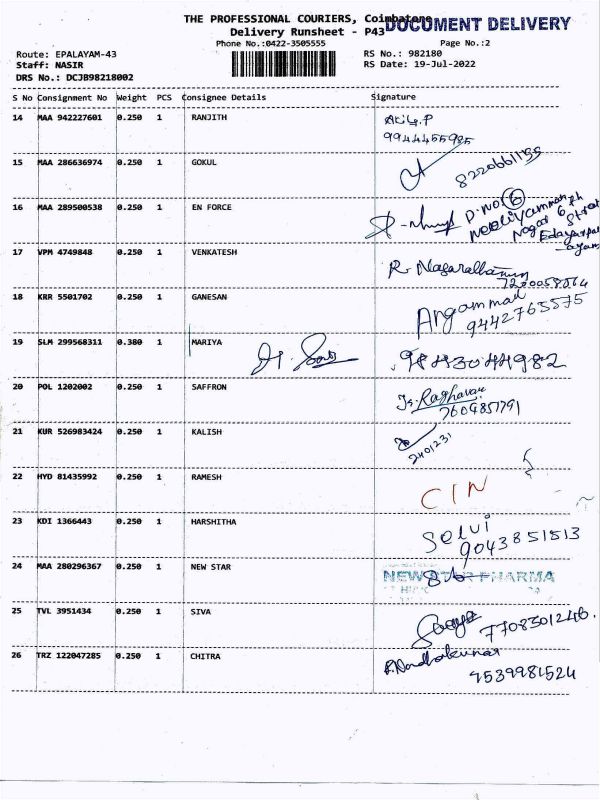 THE PROFESSIONAL COURIERS, Coimbatore
DOCUMENT DELIVERY
Delivery Runsheet - P43
Phone No.:0422-3505555
Page No.:2
Route: EPALAYAM-43
RS No.: 982180
Staff: NASIR
RS Date: 19-Jul-2022
DRS No.: DCJB98218002
S No Consignment No Weight PCS Consignee Details Signature
14 MAA 942227601 0.250 1 RANJITH
9944455985
15 MAA 286636974 0.250 1 GOKUL
8220661155
16 MAA 289500538 0.250 1 EN FORCE
D.No: 6
Nagar 6th
Street
17 VPM 4749848 0.250 1 VENKATESH
R. Nagarathanum
7200058564
18 KRR 5501702 0.250 1 GANESAN
Angammal
9442765575
19 SLM 299568311 0.380 1 MARIYA
9843044982
20 POL 1202002 0.250 1 SAFFRON
Raghavan
7609851791
21 KUR 526983424 0.250 1 KALISH
2401231
22 HYD 81435992 0.250 1 RAMESH
CIN
23 KDI 1366443 0.250 1 HARSHITHA
Selvi
9043851513
24 MAA 280296367 0.250 1 NEW STAR
NEW STAR PHARMA
25 TVL 3951434 0.250 1 SIVA
7708301246.
26 TRZ 122047285 0.250 1 CHITRA
9539981524